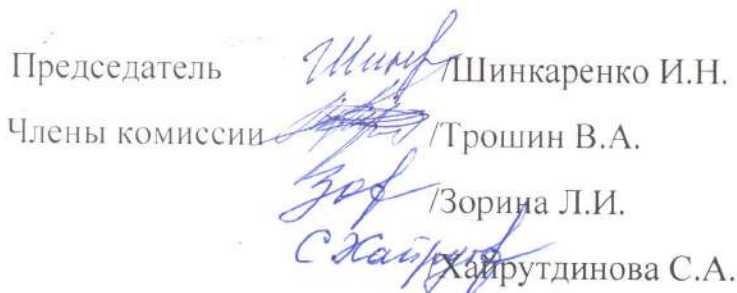 Председатель /Шинкаренко И.Н.
Члены комиссии /Трошин В.А.
/Зорина Л.И.
С Хайрутд /Хайрутдинова С.А.